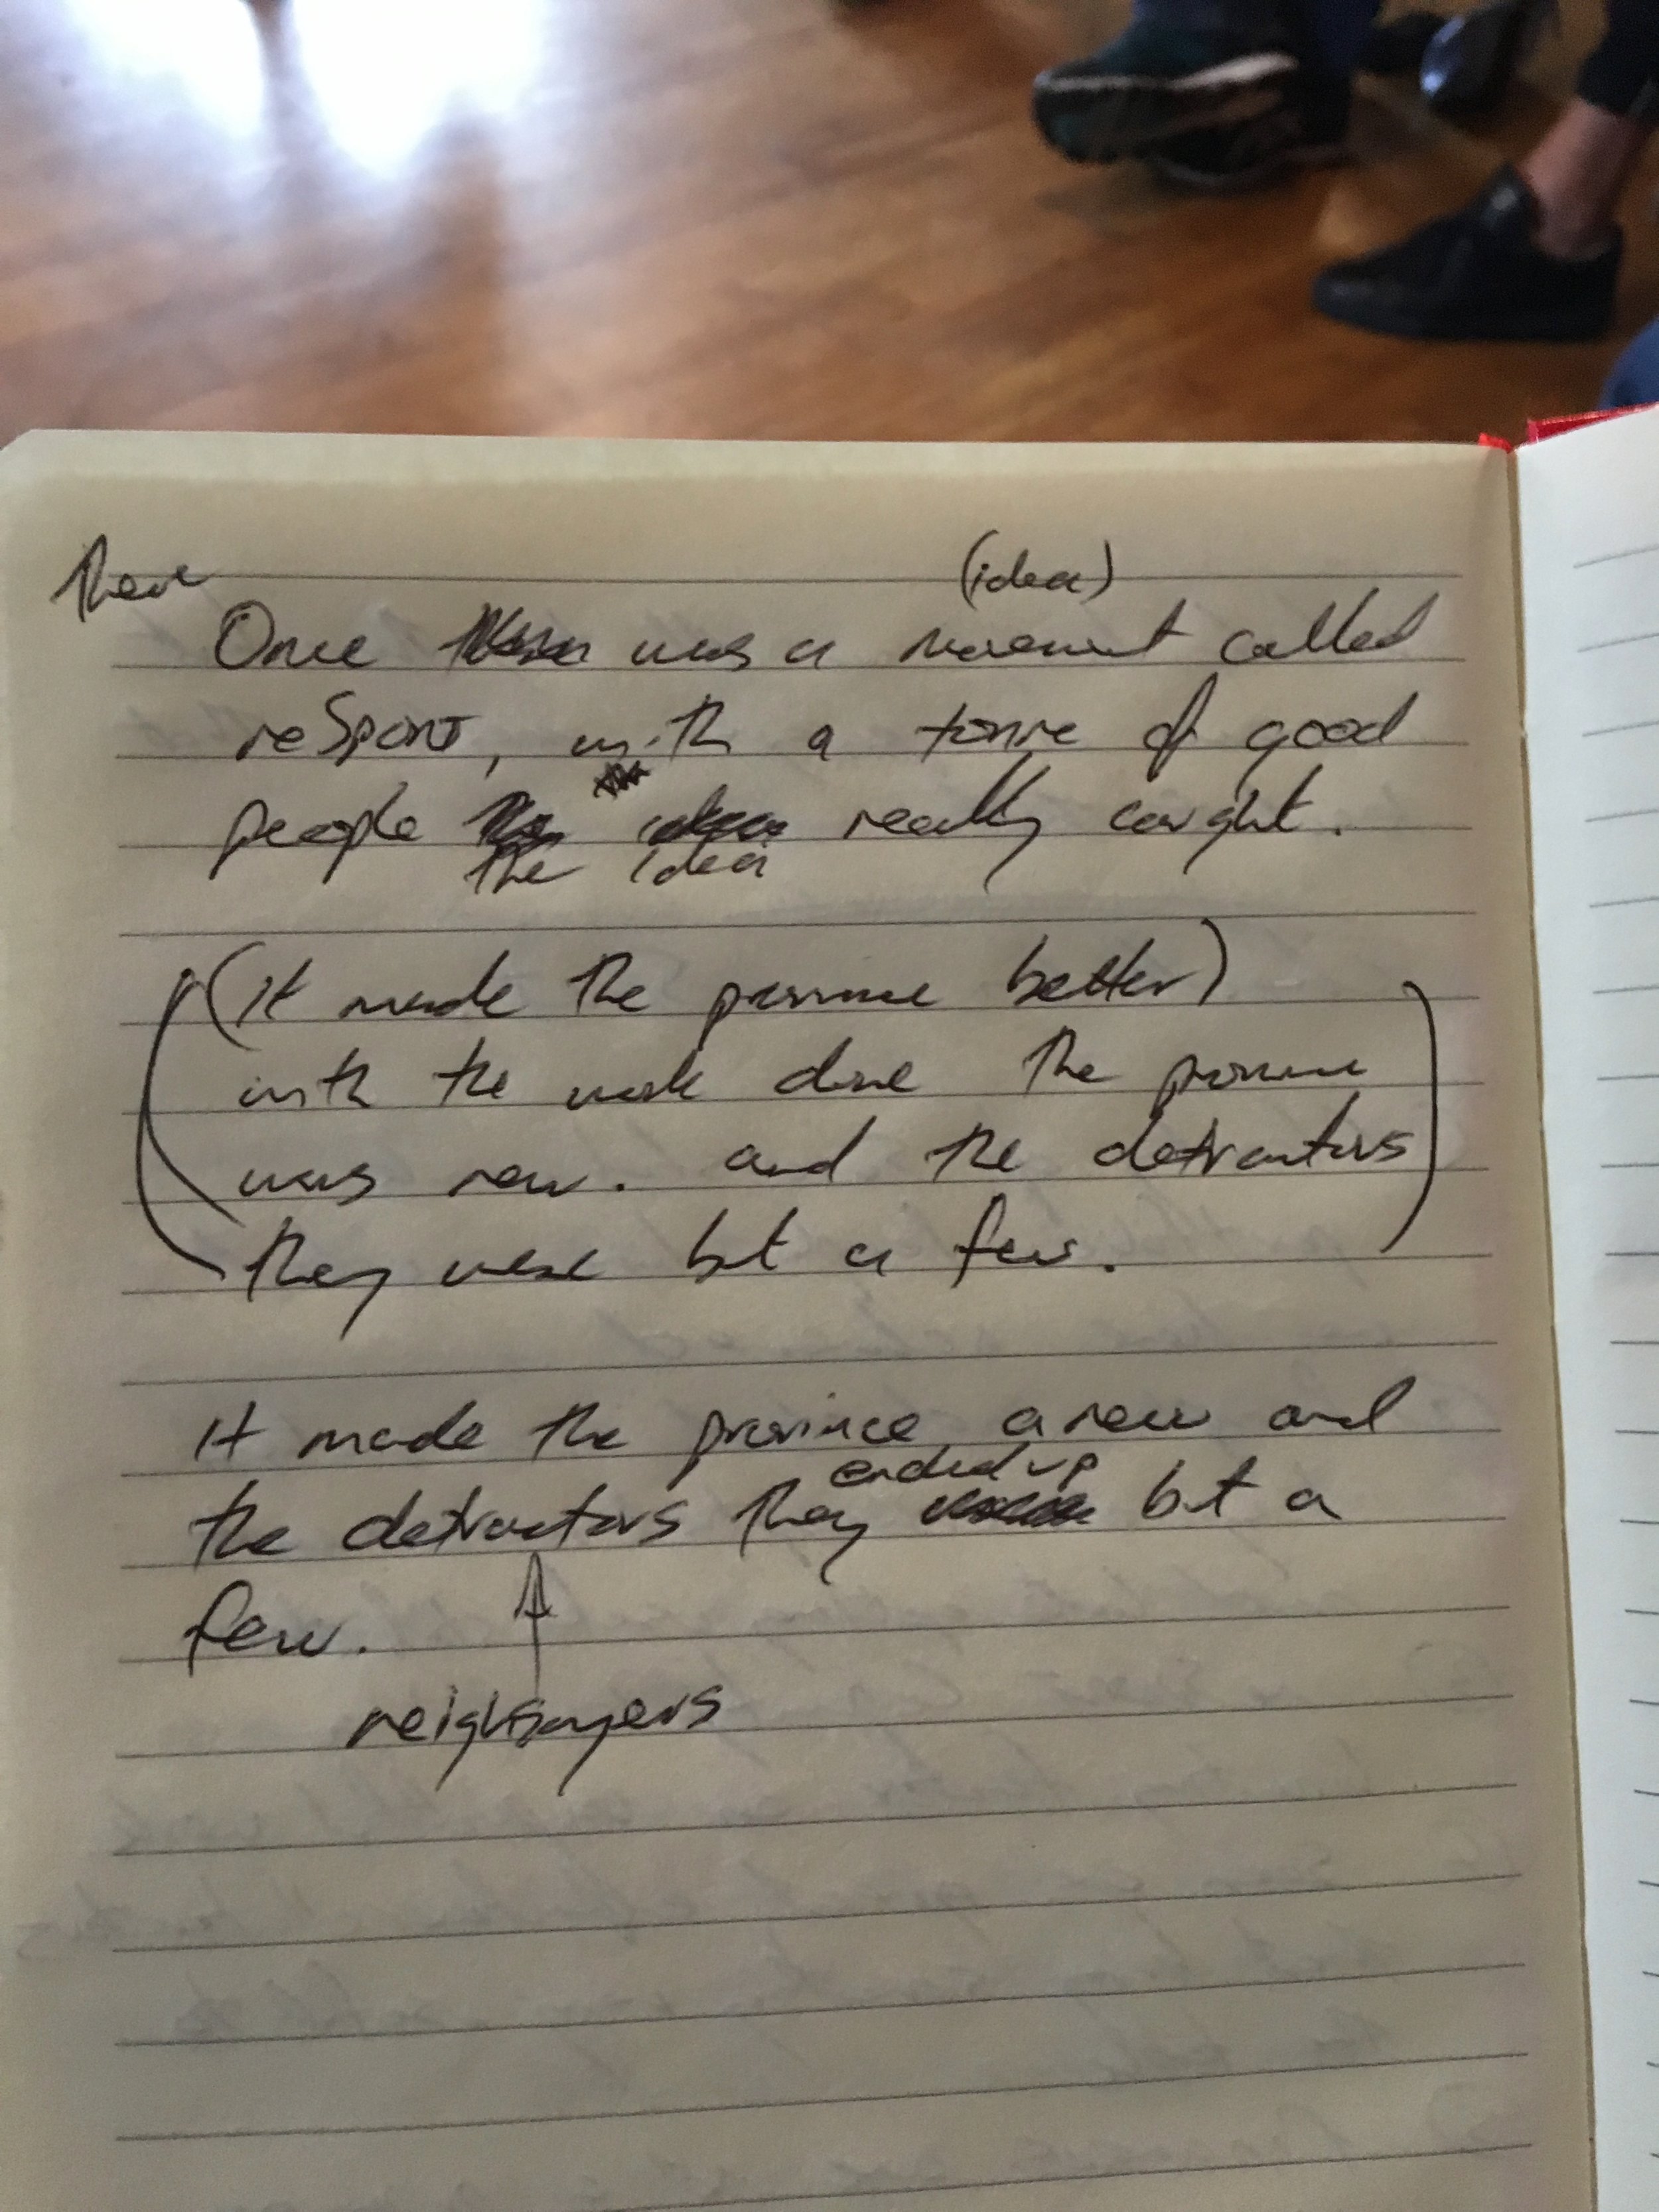 There (idea)
Once was a movement called
reSport, with a tonne of good
people really caught.
the idea
(it made the province better)
with the work done the province
was new. and the detractors
they were but a few.
it made the province a new and
ended up
the detractors they but a
few.
neighsayers